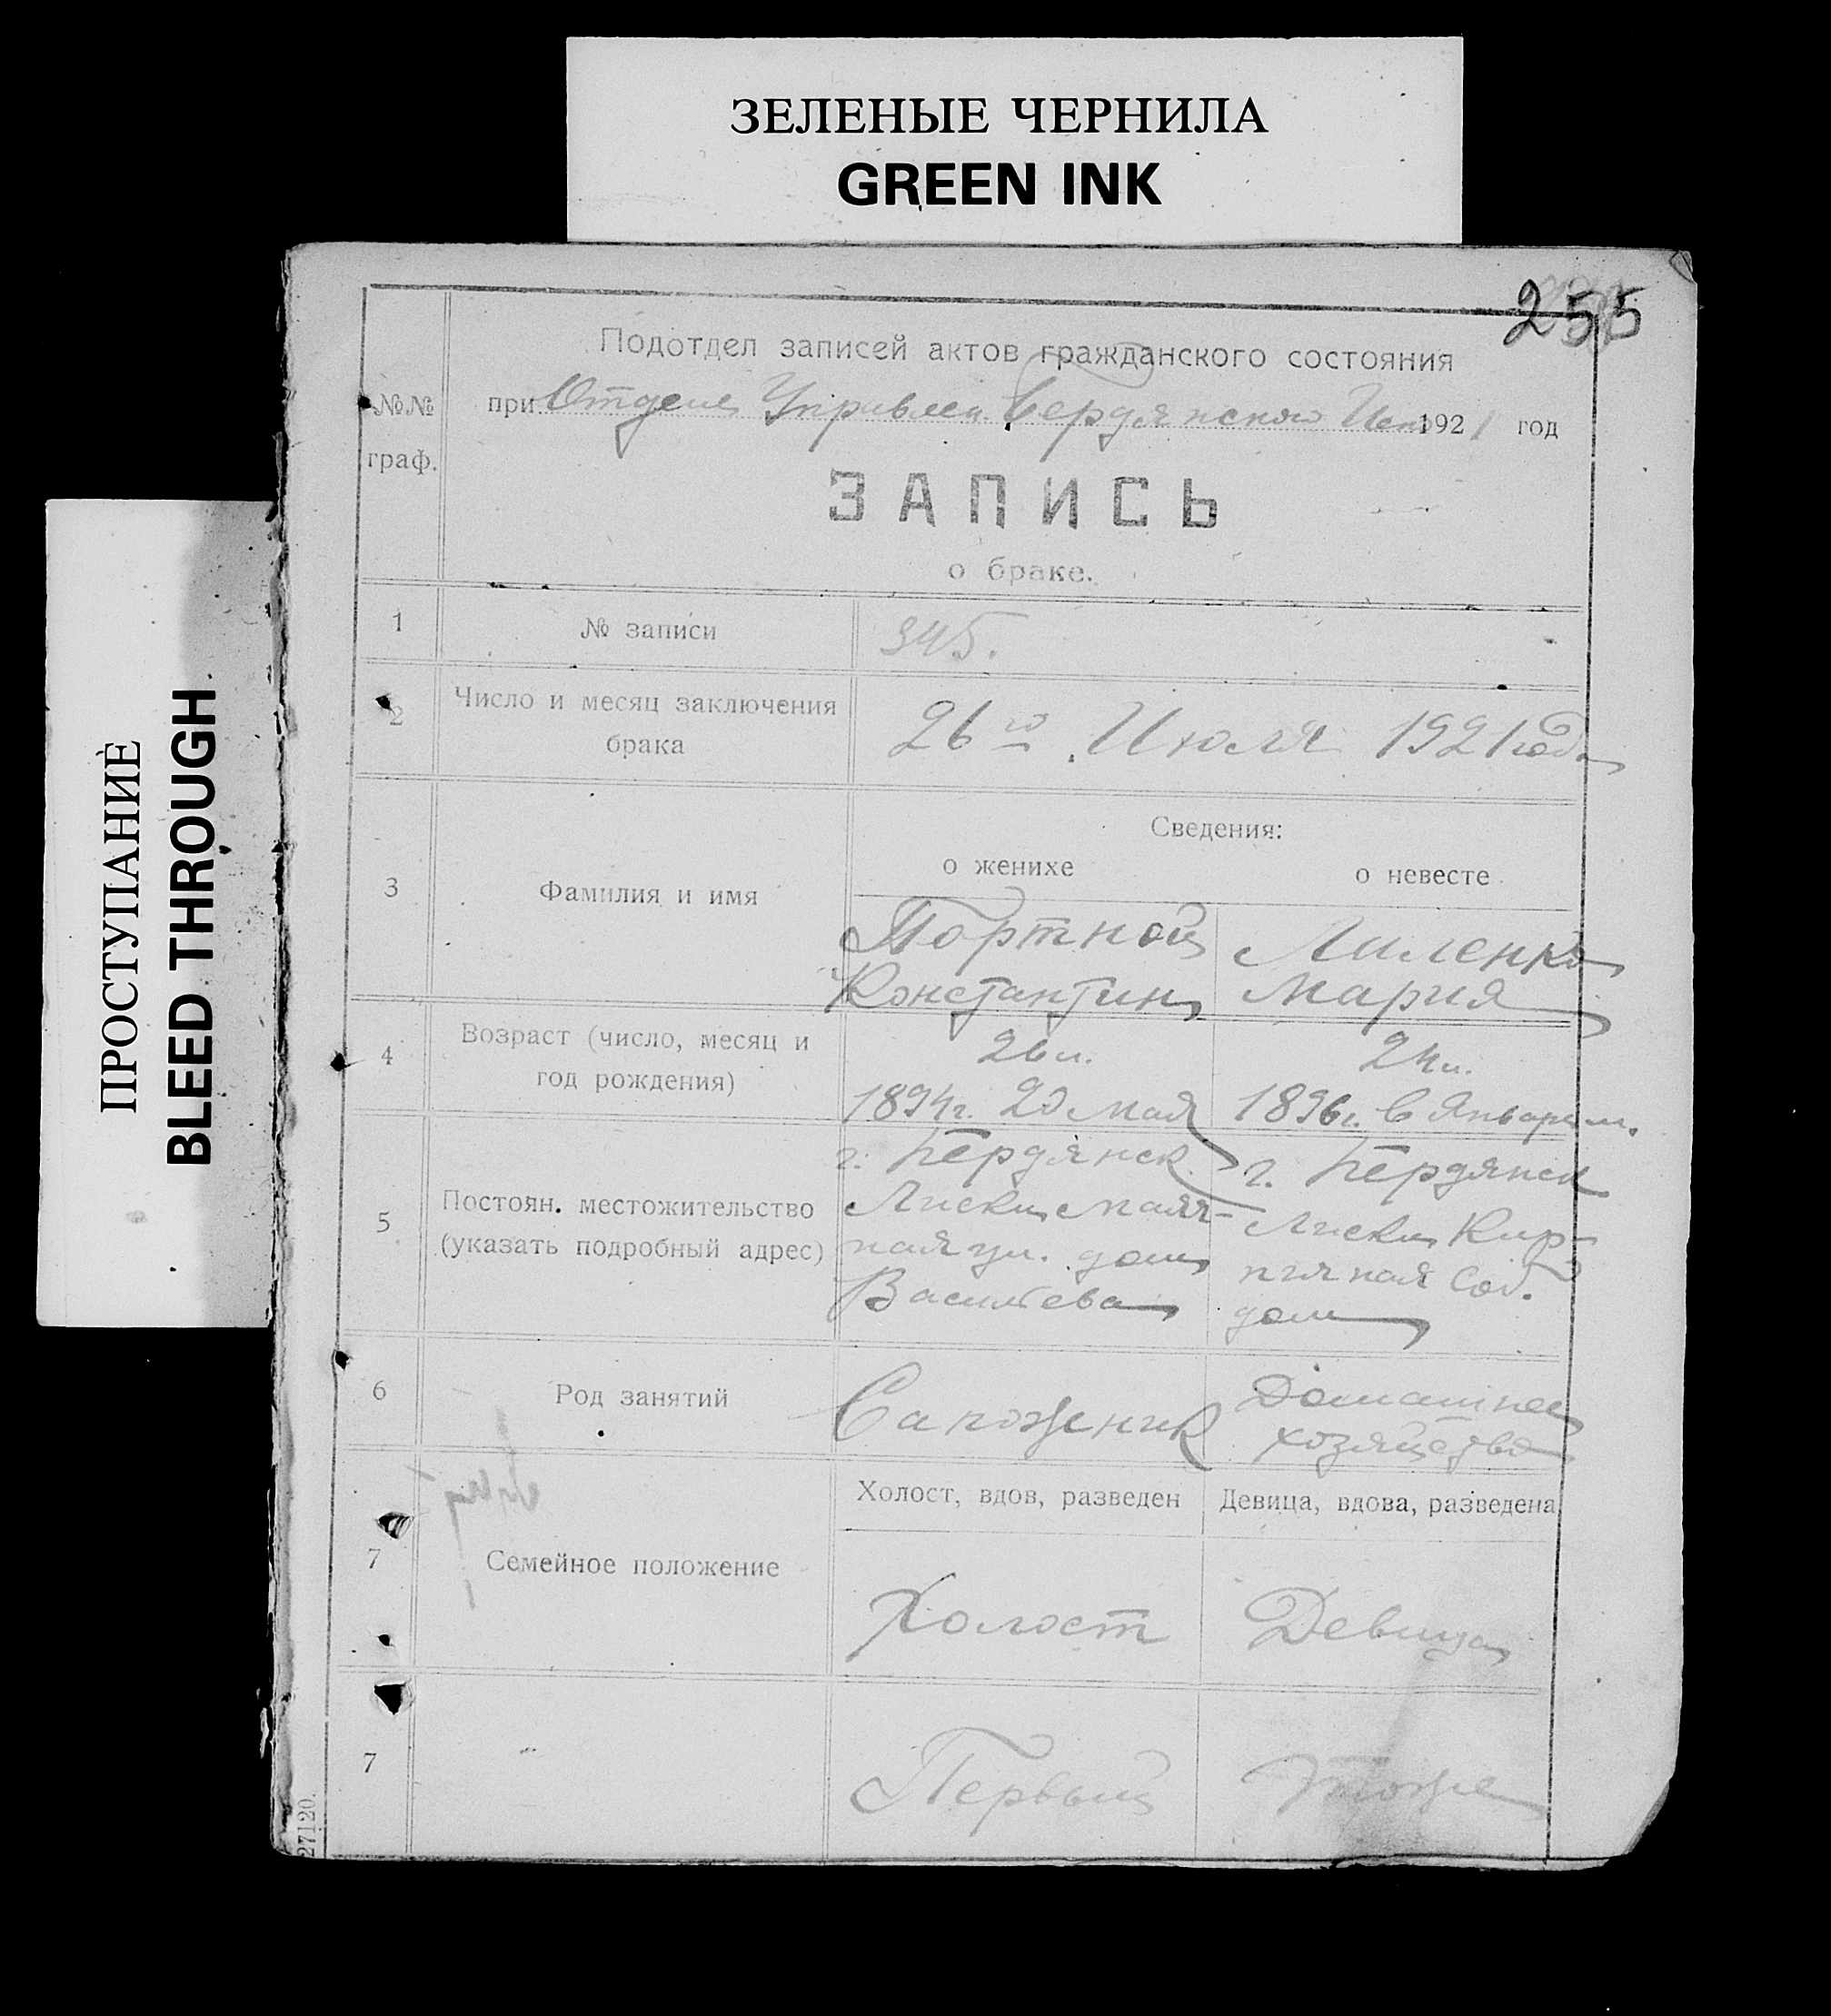 ЗЕЛЕНЫЕ ЧЕРНИЛА
GREEN INK
ПРОСТУПАНИЕ
BLEED THROUGH
255
Подотдел записей актов гражданского состояния
№№ граф.
при Отделе Управлен. Бердянского 1921 год
ЗАПИСЬ
о браке.
1 № записи 345.
2 Число и месяц заключения брака 26го Июля 1921 года
Сведения:
о женихе о невесте
3 Фамилия и имя
Портной
Константин
Мария
4 Возраст (число, месяц и год рождения)
26 л. 24 л.
1894г. 20 мая 1896г. в Январе м.
5 Постоян. местожительство (указать подробный адрес)
г. Бердянск г. Бердянск
Лиски Маяч- Лиски Кир-
ная ул. дом пичная соб.
Васильева дом
6 Род занятий Сапожник Домашнее
хозяйство
Холост, вдов, разведен Девица, вдова, разведена
7 Семейное положение Холост Девица
7 Первый тоже
27120.